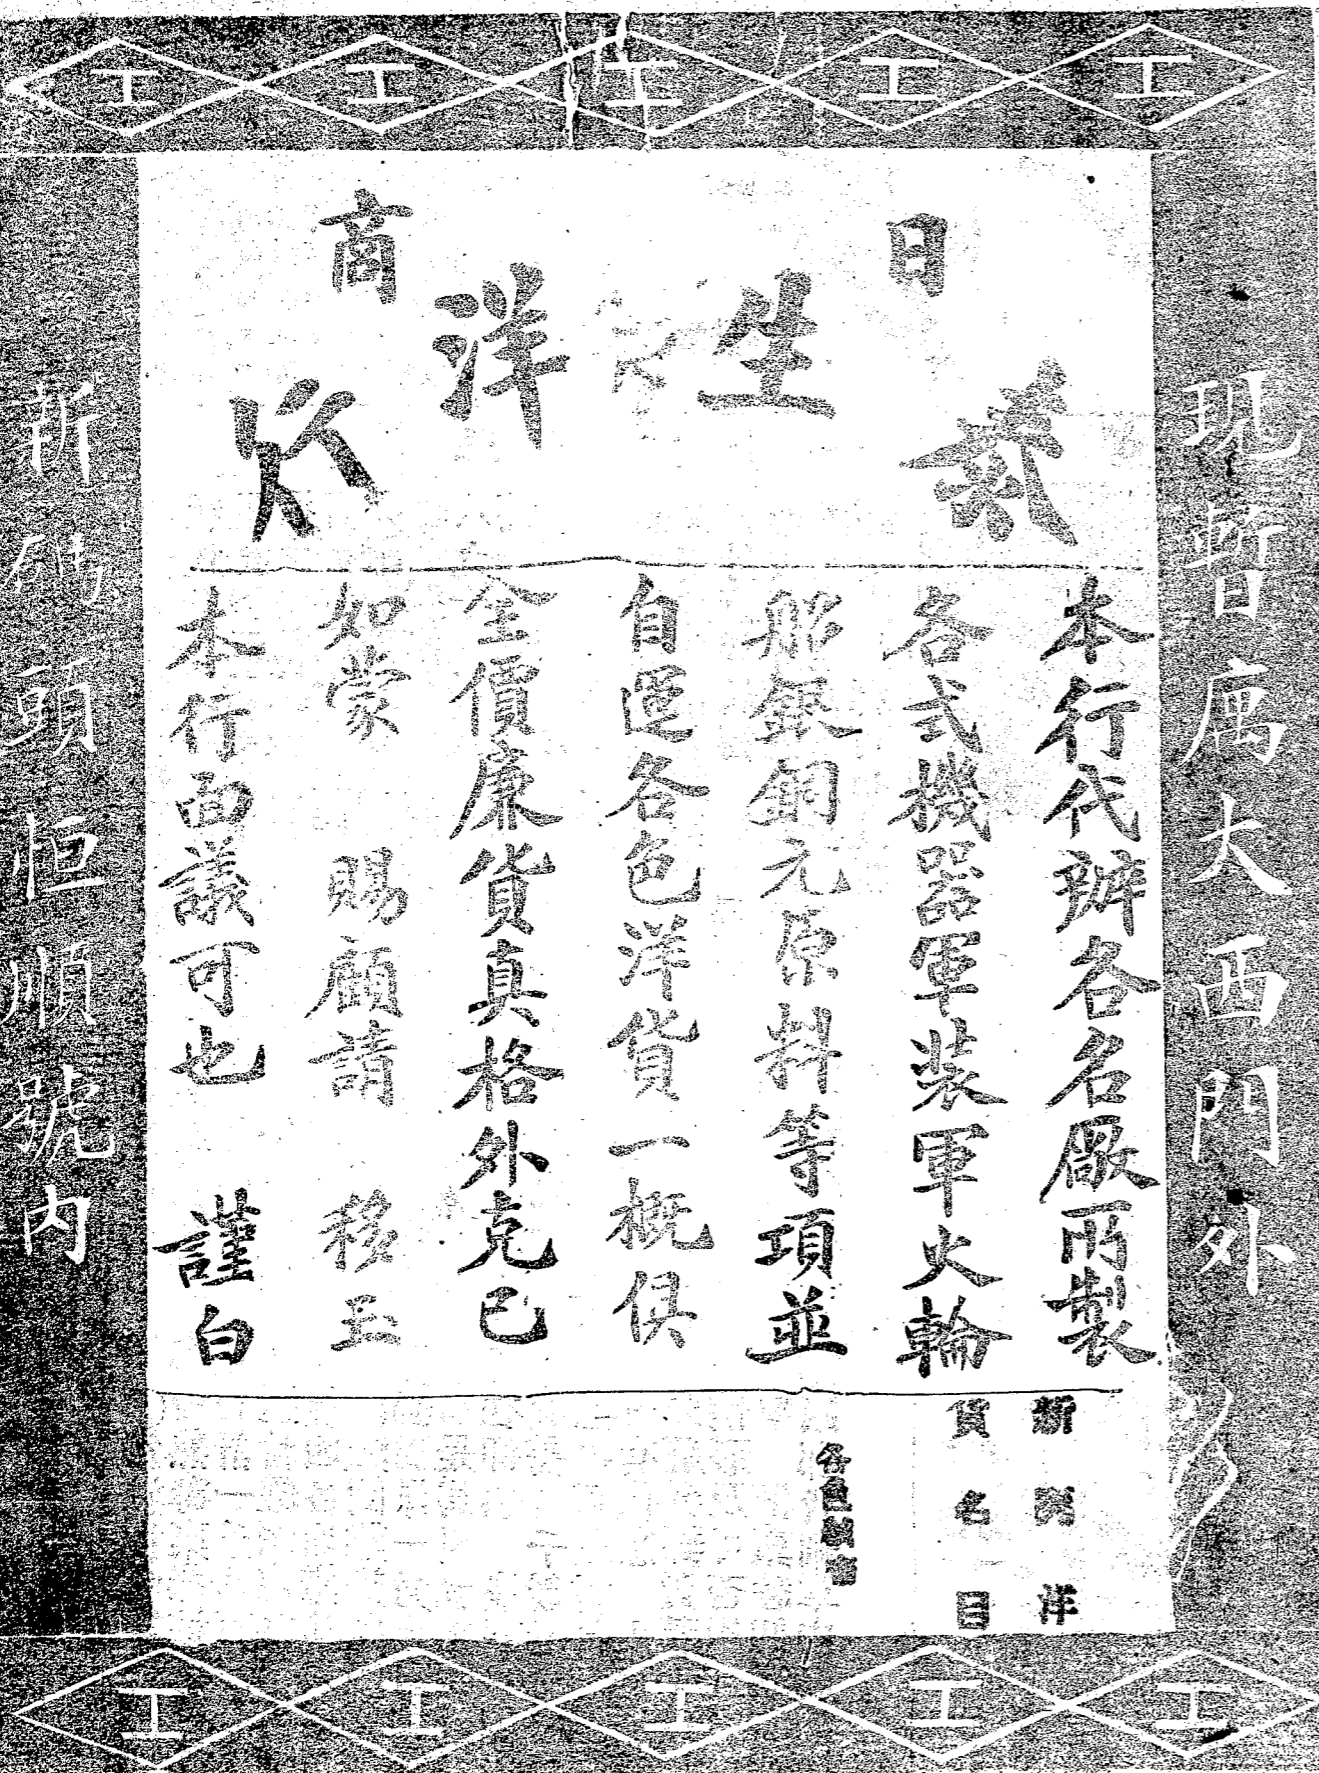 工 工 工 工 工
日商
生洋行
現暫庽大西門外
本行代辦各名廠所製
各式機器軍裝軍火輪
船銀銅元原料等項並
自運各色洋貨一概俱
全價廉貨真格外克己
如蒙 賜顧請 移玉
本行面議可也 謹白
新到洋
貨名目
各色
新碼頭恒順號內
工 工 工 工 工